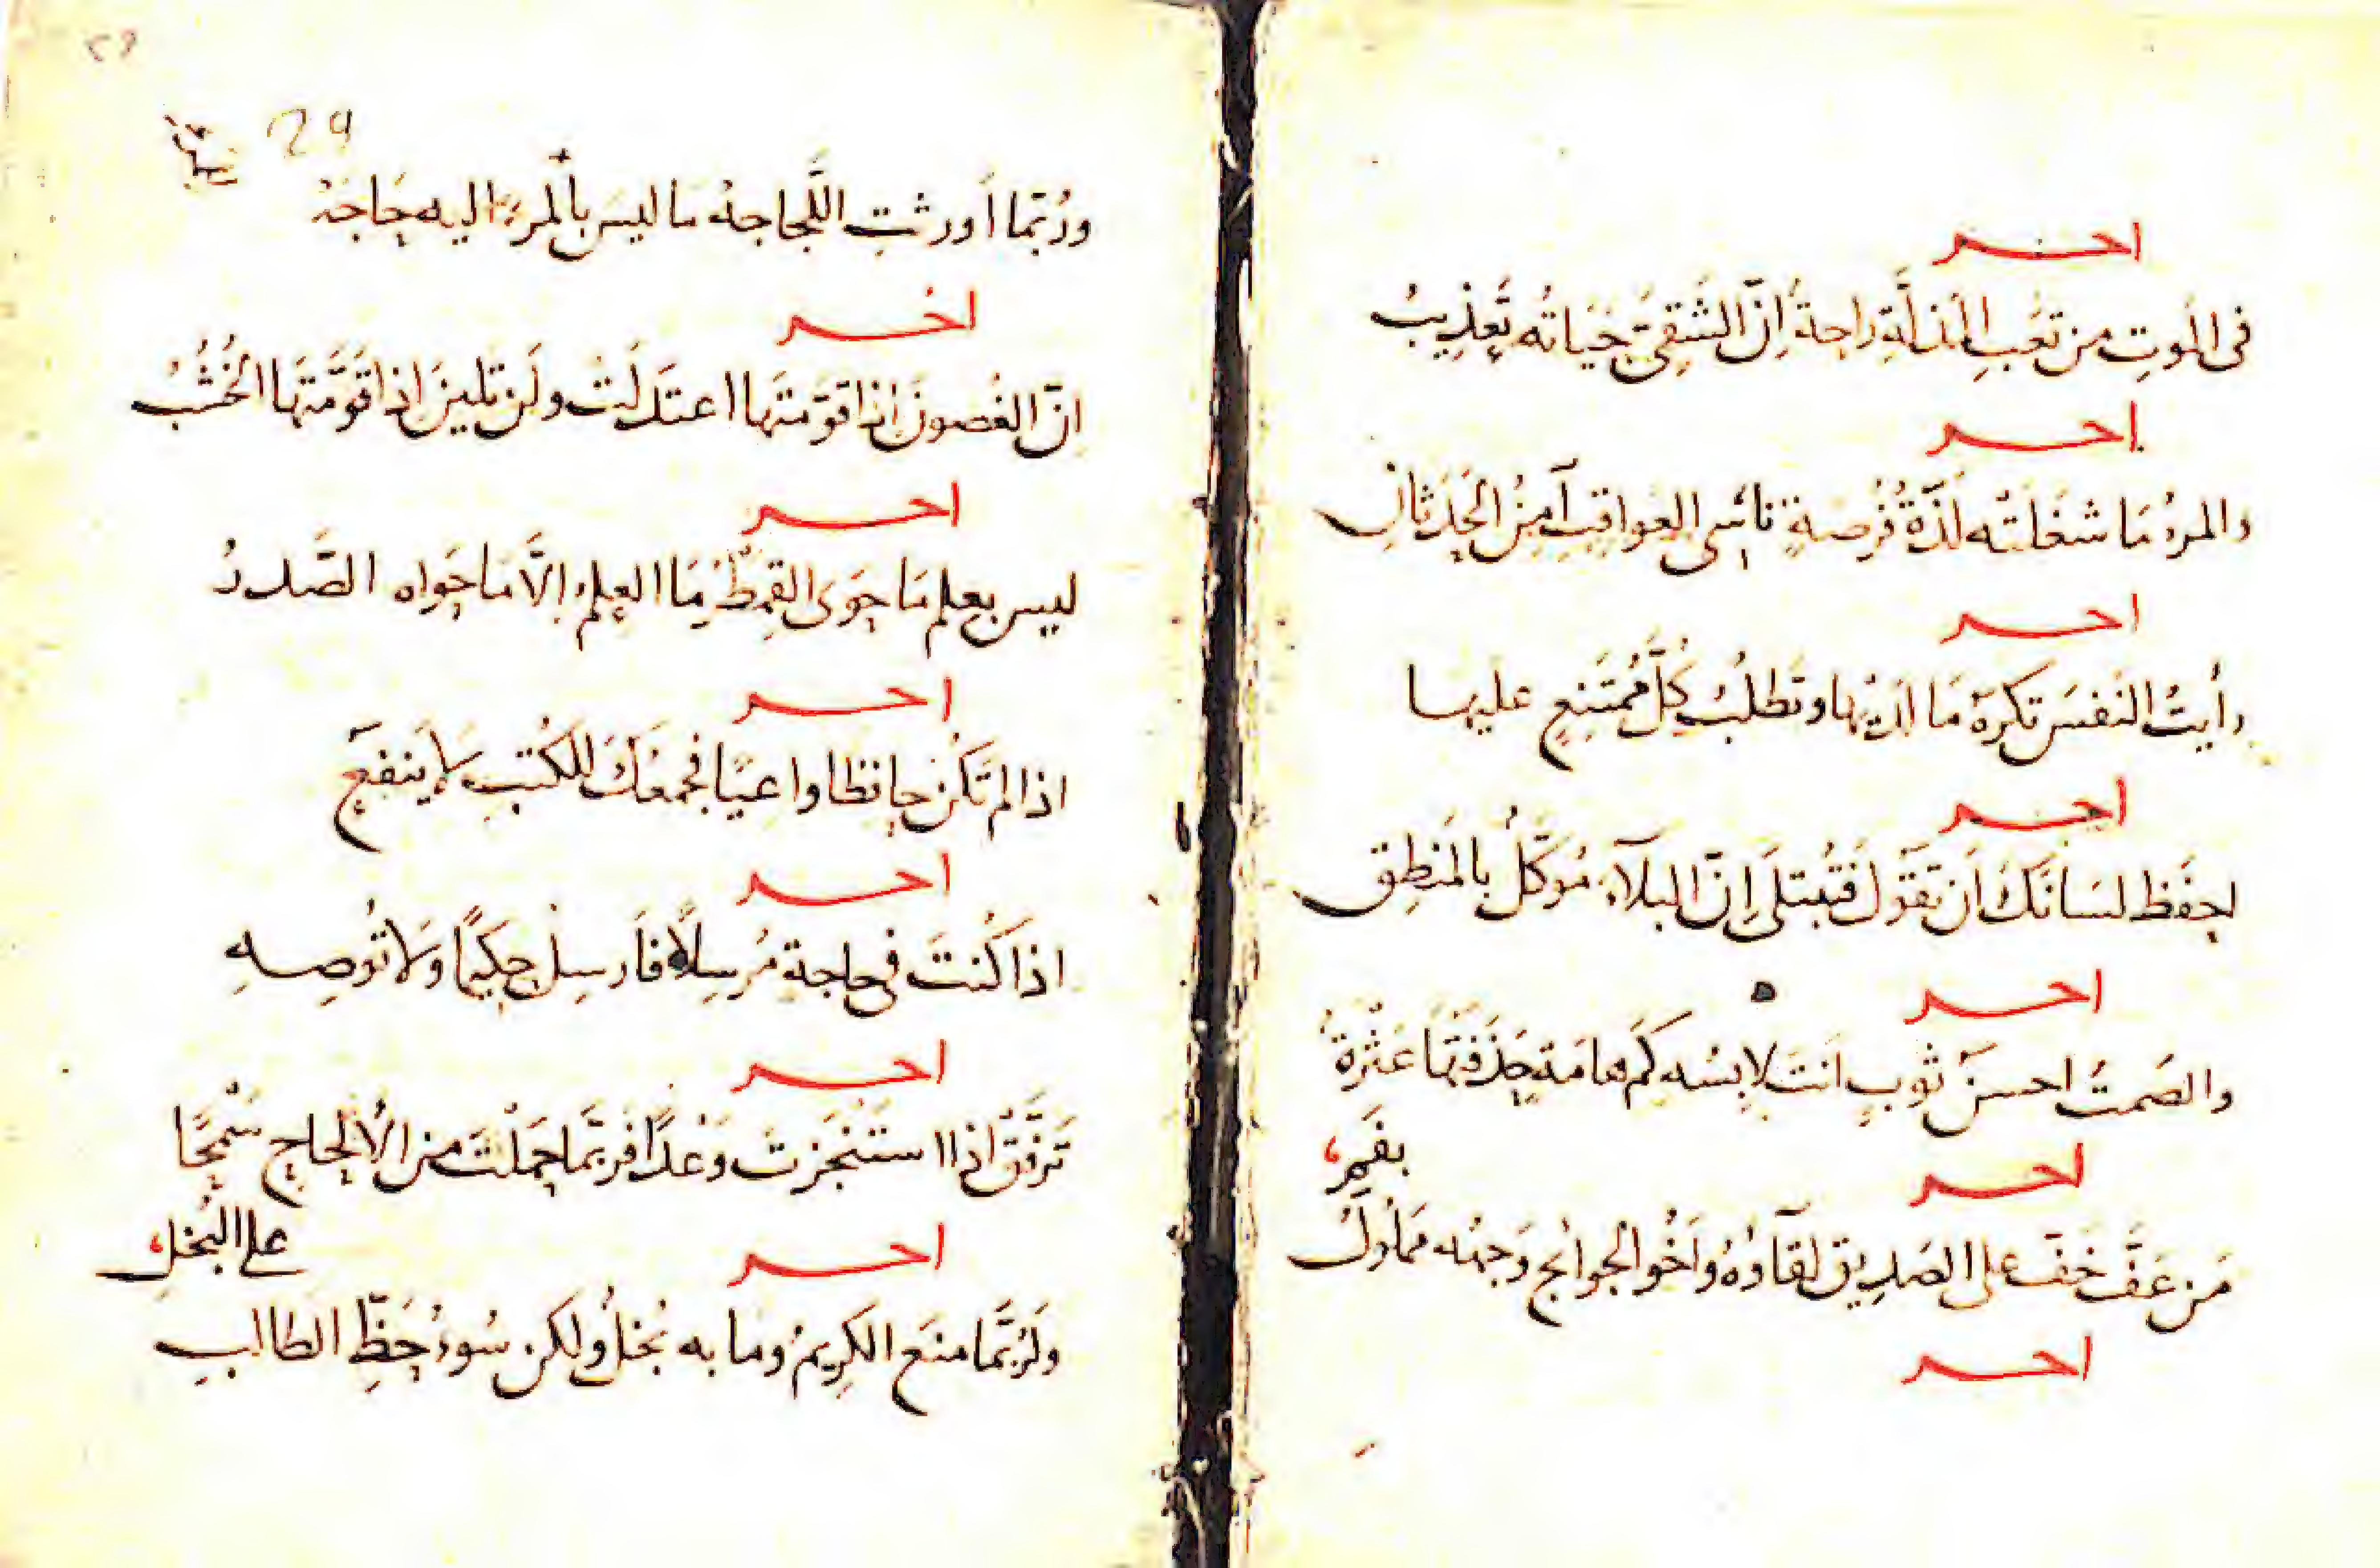 اخر
في الموتِ من تعَبِ المذلَّةِ راحةٌ اِنّ الشَقِىَّ حَيَاتُه تَعذِيبُ
اخر
والمرءُ مَا شغَلتْه لَذّةُ فُرصةٍ ناسِى العواقبِ آمِنُ الحِدَثانِ
اخر
رأيتُ النَفسَ تكرهُ مَا لدَيْها وتَطلبُ كُلَّ مُمتَنِعٍ عليها
اخر
احفَظ لسَانَكَ اَن تقَوُلَ فتُبتلَى اِنّ البلآءَ مُوَكّلٌ بالمَنطِقِ
اخر
والصَمتُ احسنُ ثَوبٍ اَنتَ لابِسُه كَم هامَةٍ حَذَفَتْهَا عَثْرةٌ
بفَمِ
اخر
مَن عَفَّ خَفَّ على الصَدِيقِ لقآؤهُ واَخُو الحوائجِ وَجهُه مَملُولُ
اخر
29
24
ورُبّما اَورثتِ اللَّجاجةُ ما ليسَ بالمرءِ اليه حَاجَهْ
اخر
انّ الغُصونَ اِذا قوّمتَها اعتدَلَتْ ولَن تلينَ اِذا قوَّمتَهَا الخُشُبُ
اخر
ليس بعلمٍ مَا حَوَى القِمَطْرُ مَا العِلمُ اِلاَّ مَا حَوَاه الصَّدرُ
اخر
اذا لم تَكُن حافظا واعيًا فجَمعُكَ للكُتبِ لاَ يَنفَعُ
اخر
اذا كُنتَ في حاجة مُرسِلًا فاَرسِلْ حكِيمًا وَلاَ تُوصِهِ
اخر
تَرفَّقْ اذا استَنْجَزتَ وَعْدًا فربّمَا حَمَلْتَ من الاُلحاحِ سَمْحًا
على البُخلِ
اخر
ولَربَّما منَع الكرِيمُ وما به بُخلٌ ولكن سُوءُ حَظِّ الطالبِ